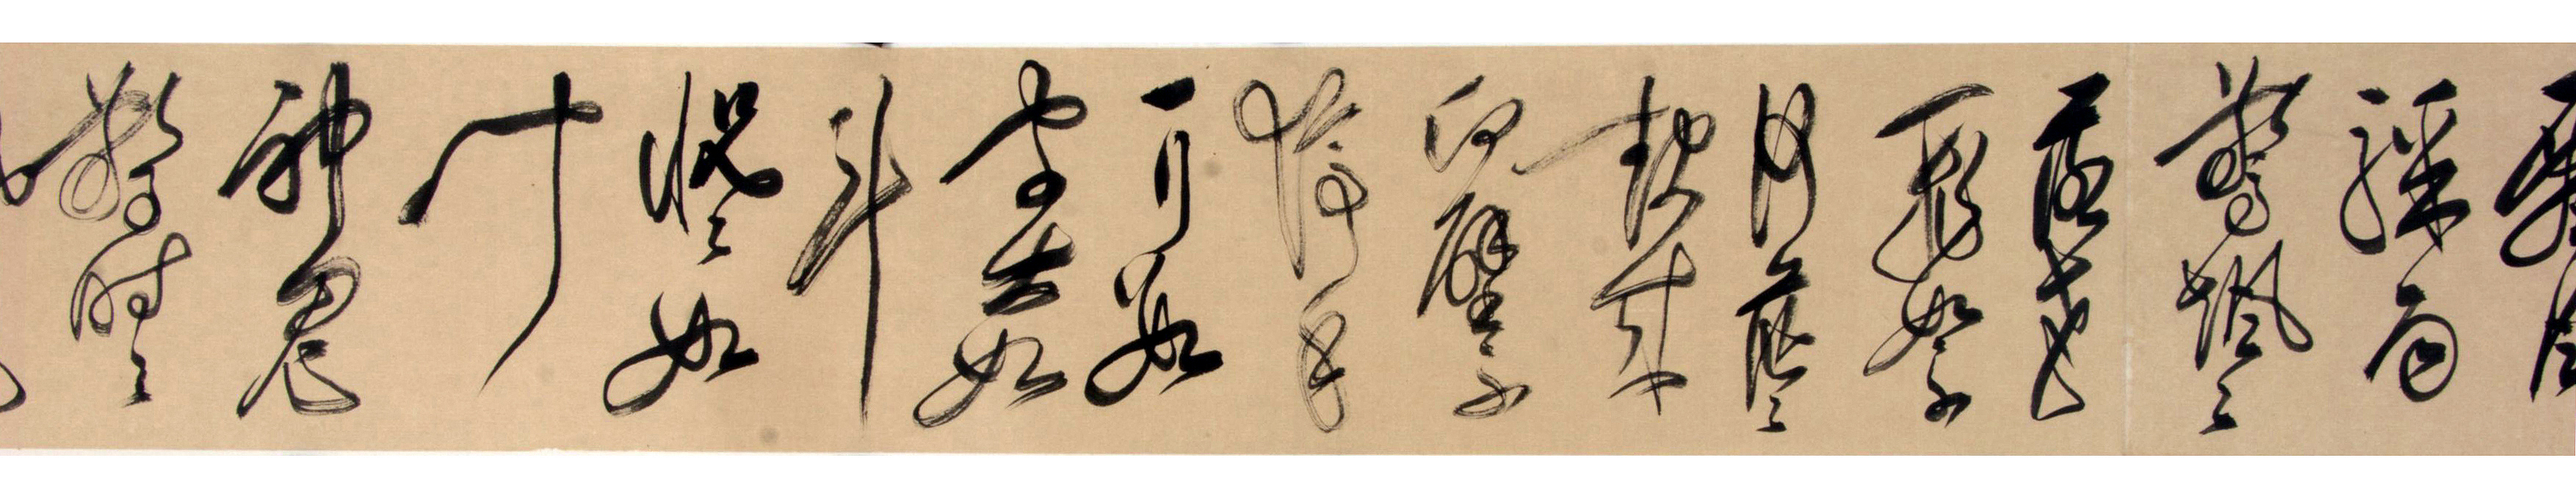 驟雨
驚颯々
落花
飛雪
何茫々
起来
向壁不
停手
一行數
字大如
斗
怳々如
聞
神鬼
驚時々